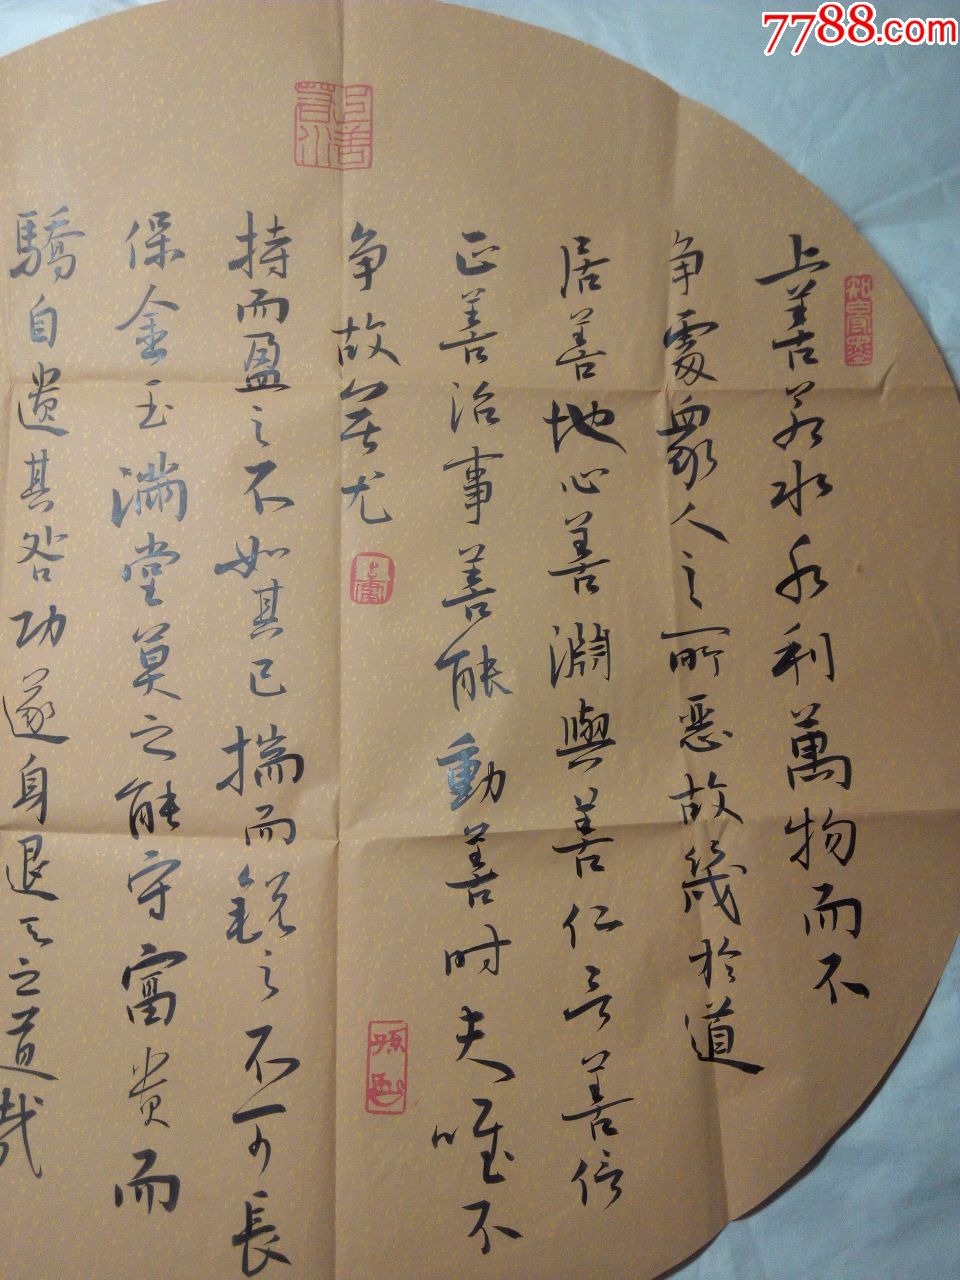 7788.com
上善若水水利萬物而不
争處衆人之所惡故幾於道
居善地心善淵與善仁言善信
正善治事善能動善時夫唯不
争故無尤
持而盈之不如其已揣而銳之不可長
保金玉滿堂莫之能守富貴而
驕自遺其咎功遂身退天之道哉